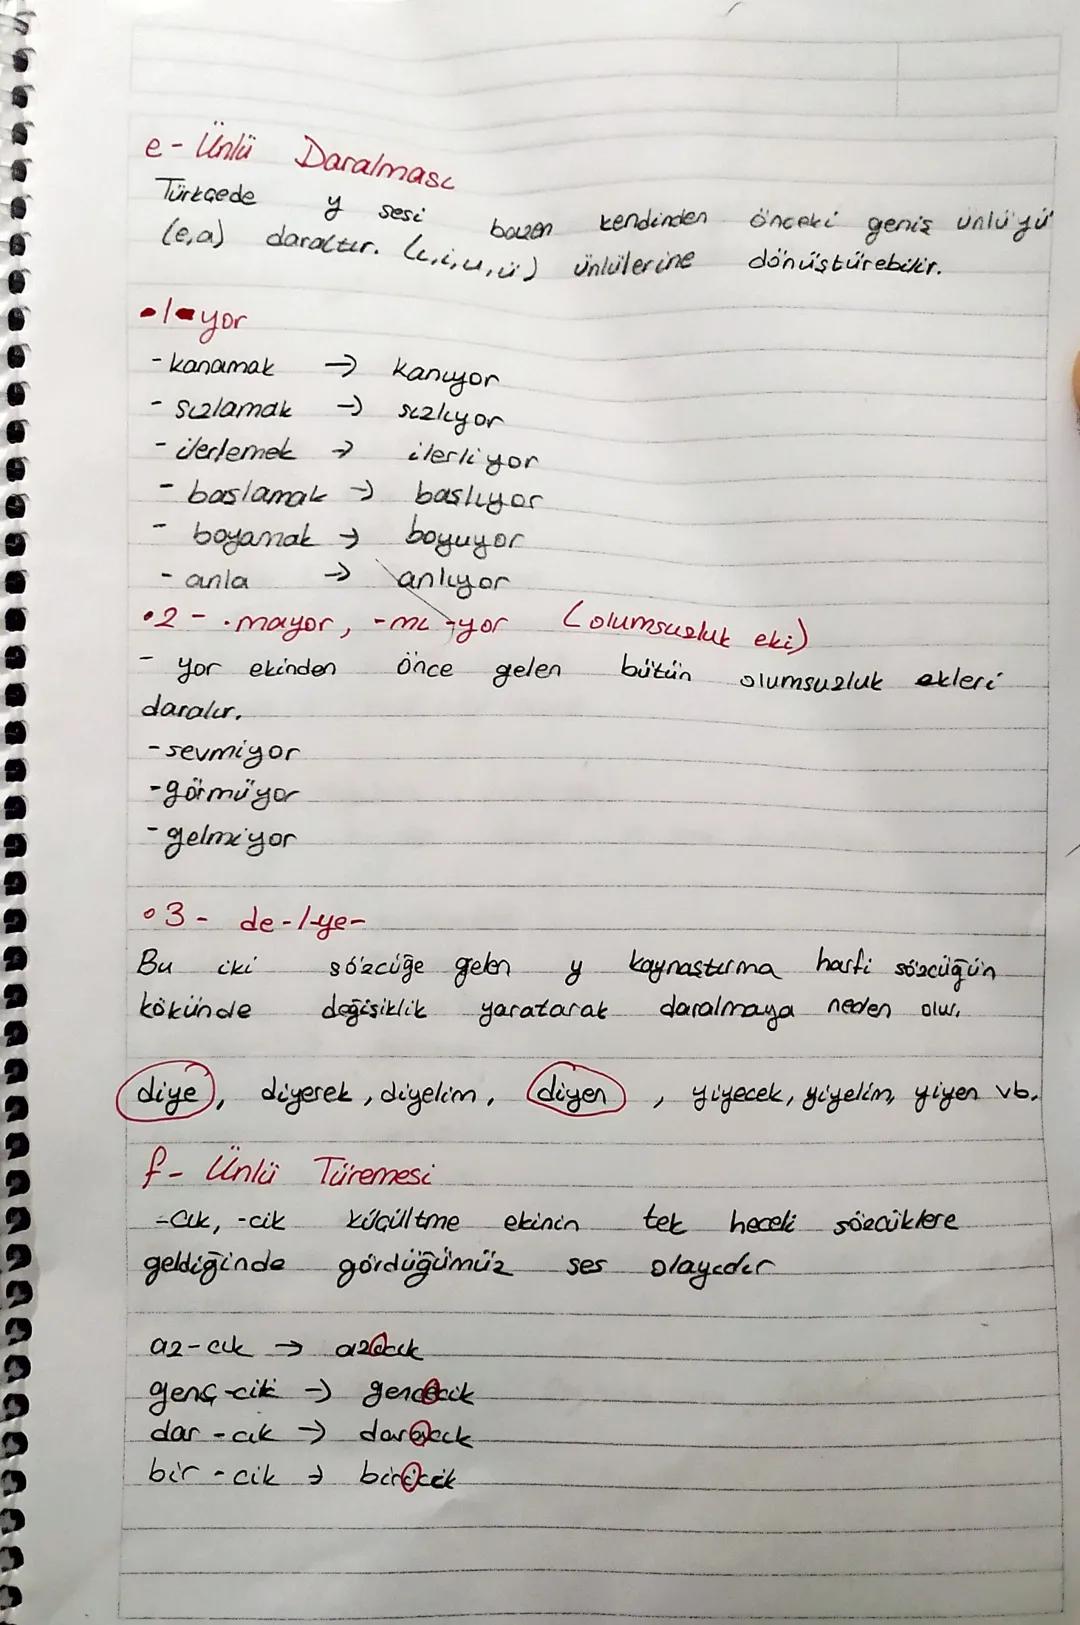 e- Ünlü Daralması
Türkçede y sesi bazen kendinden önceki geniş ünlüyü
(e,a) daraltır. (ı,i,u,ü) ünlülerine dönüştürebilir.
•1- yor
- kanamak → kanıyor
- sızlamak → sızlıyor
- ilerlemek → ilerliyor
- başlamak → başlıyor
- boyamak → boyuyor
- anla → anlıyor
•2 - . mayor, -mı -yor (olumsuzluk eki)
- yor ekinden önce gelen bütün olumsuzluk ekleri
daralır.
- sevmiyor
- görmüyor
- gelmiyor
•3 - de-/-ye-
Bu iki sözcüğe gelen y kaynaştırma harfi sözcüğün
kökünde değişiklik yaratarak daralmaya neden olur.
diye, diyerek, diyelim, diyen, yiyecek, yiyelim, yiyen vb.
f- Ünlü Türemesi
-cık, -cik küçültme ekinin tek heceli sözcüklere
geldiğinde gördüğümüz ses olayıdır
az-cık → azacık
genç-cik → gencecik
dar-cık → daracık
bir-cik → biricik